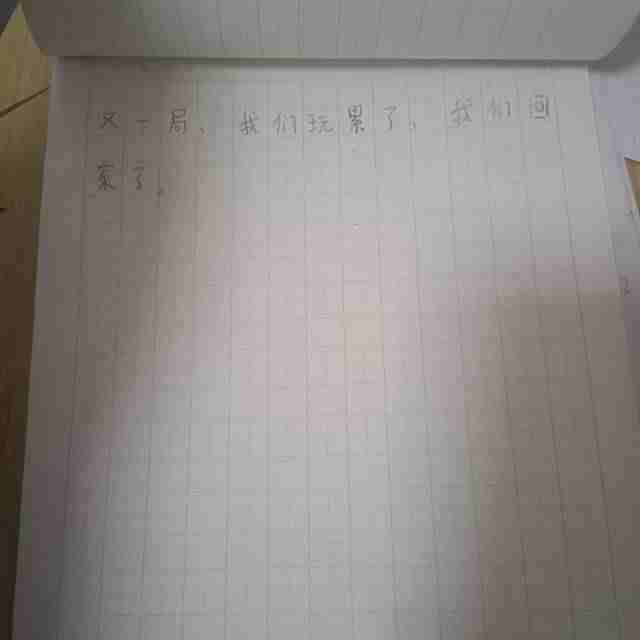 又一局、我们玩累了、我们回
家了。